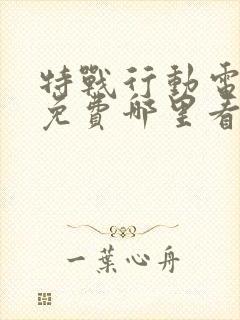 特戰行動電
免費哪里看
一葉心舟